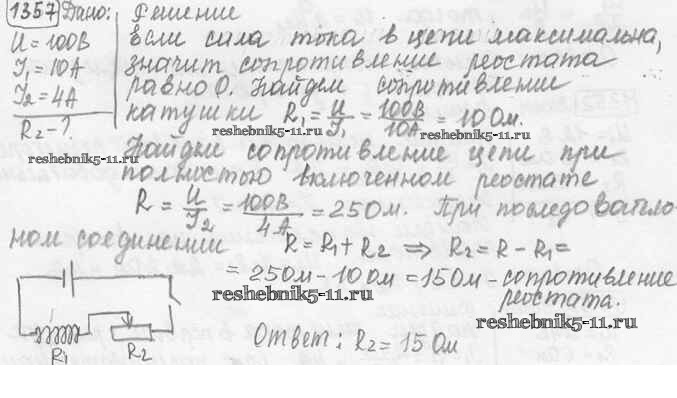 1357 Дано: Решение
U = 100В Если сила тока в цепи максимальна,
I₁ = 10А значит сопротивление реостата
I₂ = 4А равно 0. Найдем сопротивление
R₂ - ? катушки R₁ = U/I₁ = 100В/10А = 10 Ом.
reshebnik5-11.ru reshebnik5-11.ru
reshebnik5-11.ru
Найдем сопротивление цепи при
полностью включенном реостате
R = U/I₂ = 100В/4А = 25Ом. При последователь-
ном соединении R = R₁ + R₂ ⇒ R₂ = R - R₁ =
= 25Ом - 10 Ом = 15Ом - сопротивление
реостата.
reshebnik5-11.ru
reshebnik5-11.ru
R₁ R₂
Ответ: R₂ = 15 Ом